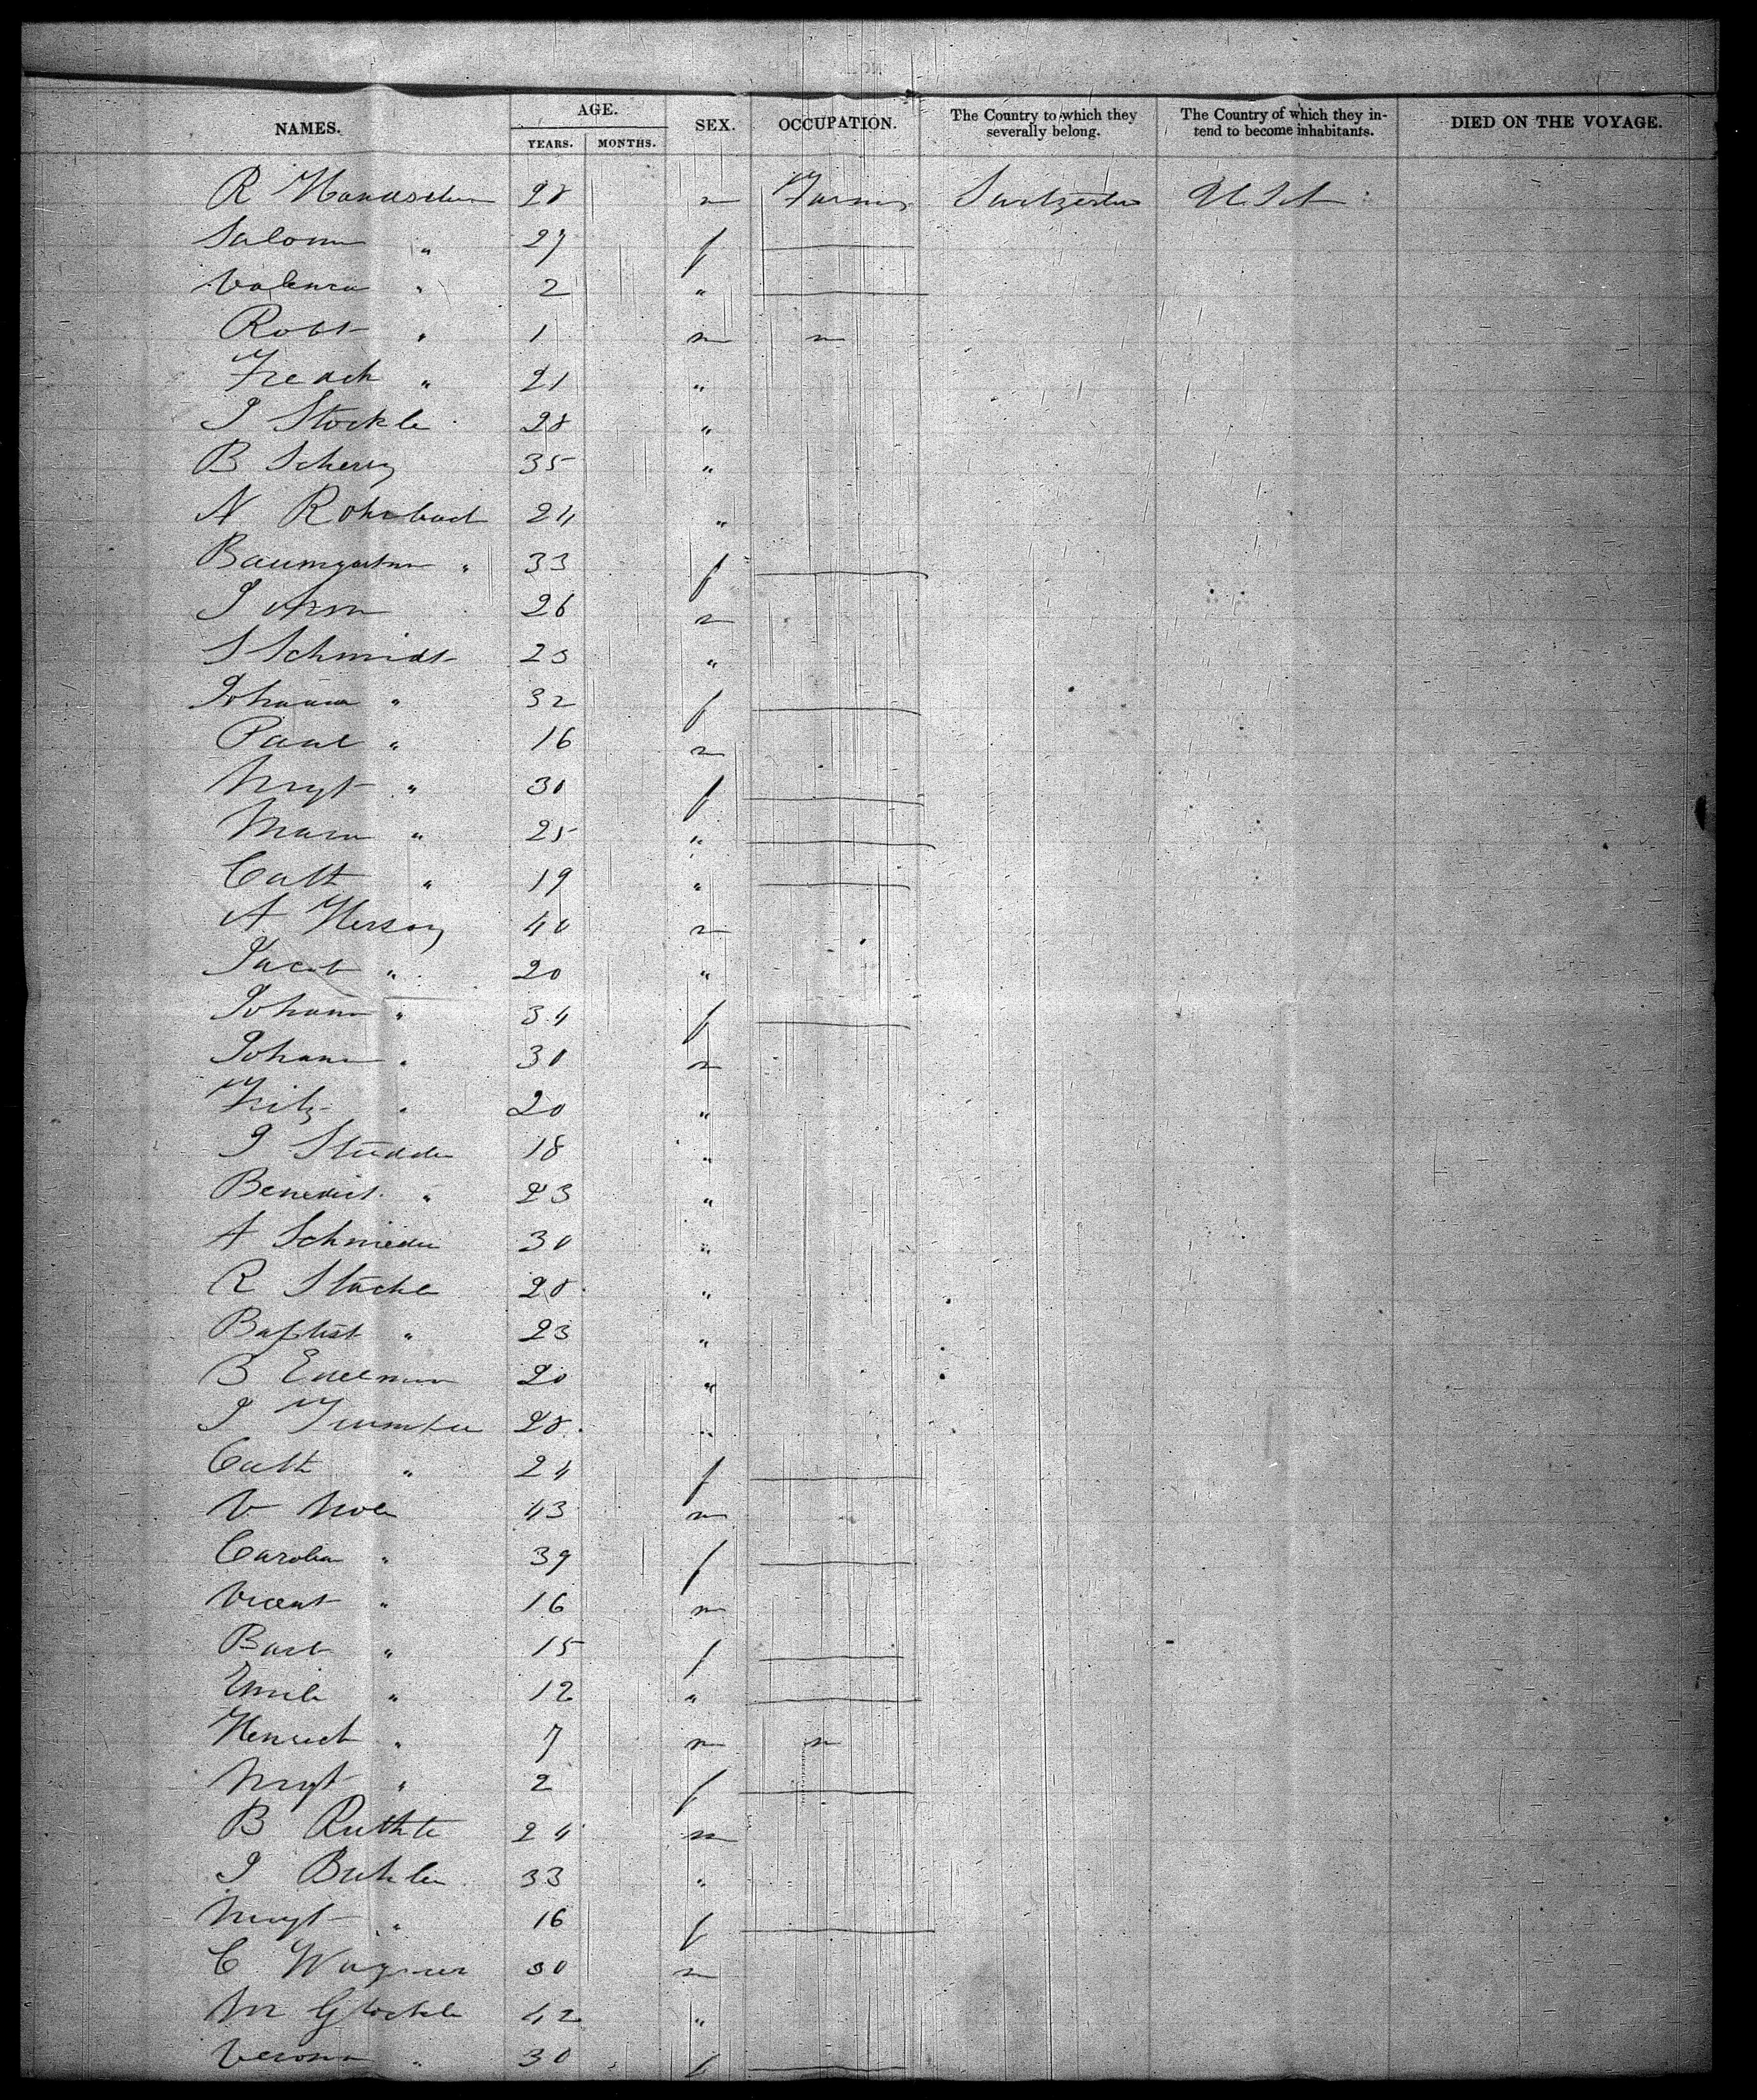 NAMES. AGE. YEARS. MONTHS. SEX. OCCUPATION. The Country to which they severally belong. The Country of which they intend to become inhabitants. DIED ON THE VOYAGE.
R 28 m Farmer Switzerland U. St
Salome " 27 f
Valenca " 2 "
Robt " 1 m
" 21 "
J Stockle 28 "
B Scherz 35 "
N Rohrbach 24 "
Baumgartner " 33 f
J 26 m
S Schmidt 23 "
Johanna " 32 f
Paul " 16 m
Mrgt " 30 f
Maria " 25 "
Cath " 19 "
A Herzog 40 m
Jacob " 20 "
Johann " 34 f
Johann " 30 m
Fritz " 20 "
J Studder 18 "
Benedict " 23 "
A Schmieder 30 "
R Stuckle 28 "
Baptist " 23 "
B Edelman 20 "
J 28 "
Cath " 24 f
V 43 m
Carolin " 39 f
Vicent " 16 m
Barb " 15 f
Emile " 12 "
Henrich " 7 m
Mrgt " 2 f
B 24 m
J Buhler 33 "
Mrgt " 16 f
C Wagner 30 m
M Glockle 42 "
Verona " 30 f